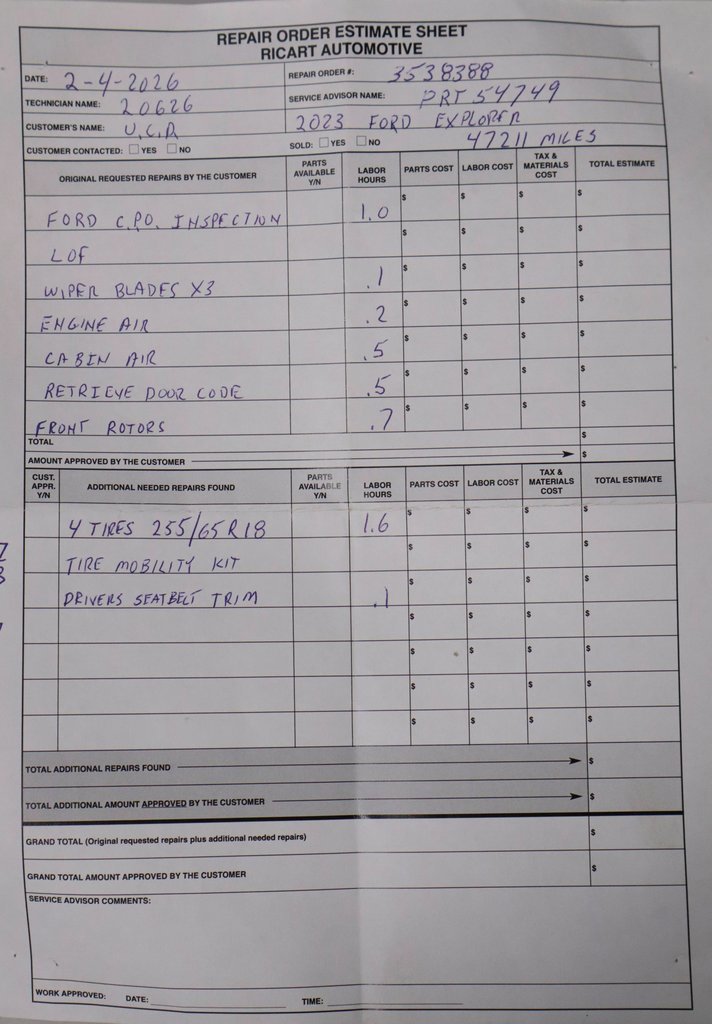 REPAIR ORDER ESTIMATE SHEET
RICART AUTOMOTIVE
DATE: 2-4-2026
REPAIR ORDER #: 3538388
TECHNICIAN NAME: 20626
SERVICE ADVISOR NAME: PRT 54749
CUSTOMER'S NAME: U.C.R
2023 FORD EXPLORER
47211 MILES
CUSTOMER CONTACTED: YES NO
SOLD: YES NO
ORIGINAL REQUESTED REPAIRS BY THE CUSTOMER PARTS AVAILABLE Y/N LABOR HOURS PARTS COST LABOR COST TAX & MATERIALS COST TOTAL ESTIMATE
FORD C.P.O. INSPECTION 1.0 $ $ $ $
LOF $ $ $ $
WIPER BLADES X3 .1 $ $ $ $
ENGINE AIR .2 $ $ $ $
CABIN AIR .5 $ $ $ $
RETRIEVE DOOR CODE .5 $ $ $ $
FRONT ROTORS .7 $ $ $ $
TOTAL $
AMOUNT APPROVED BY THE CUSTOMER $
CUST. APPR. Y/N ADDITIONAL NEEDED REPAIRS FOUND PARTS AVAILABLE Y/N LABOR HOURS PARTS COST LABOR COST TAX & MATERIALS COST TOTAL ESTIMATE
4 TIRES 255/65R18 1.6 $ $ $ $
TIRE MOBILITY KIT $ $ $ $
DRIVERS SEATBELT TRIM .1 $ $ $ $
$ $ $ $
$ $ $ $
$ $ $ $
$ $ $ $
TOTAL ADDITIONAL REPAIRS FOUND $
TOTAL ADDITIONAL AMOUNT APPROVED BY THE CUSTOMER $
GRAND TOTAL (Original requested repairs plus additional needed repairs) $
GRAND TOTAL AMOUNT APPROVED BY THE CUSTOMER $
SERVICE ADVISOR COMMENTS:
WORK APPROVED: DATE: TIME: